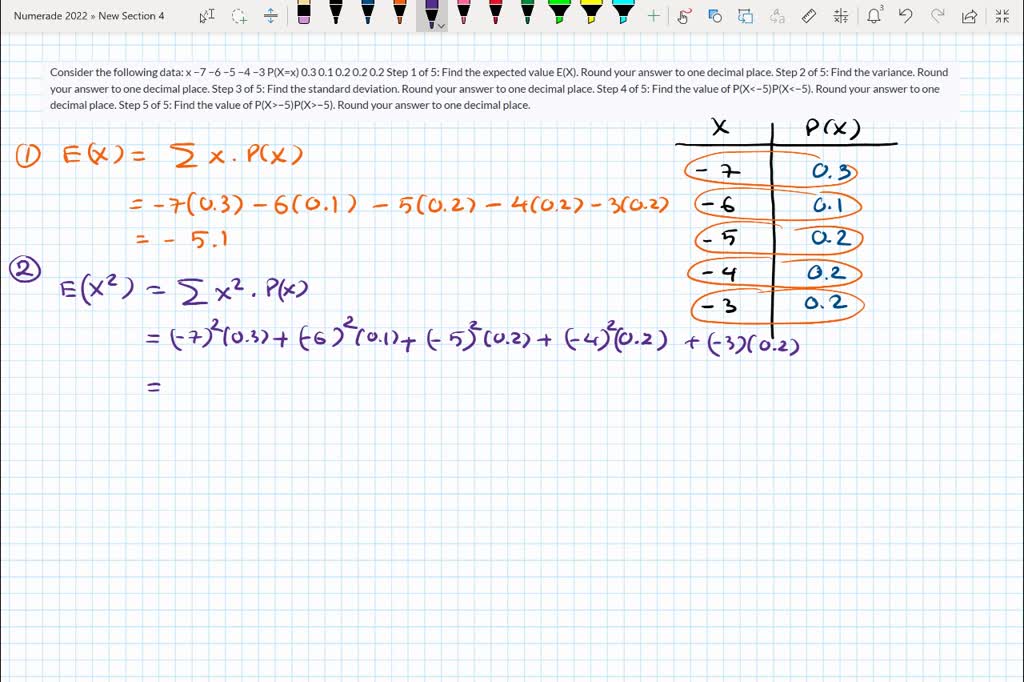 Numerade 2022 » New Section 4
3
Consider the following data: x −7 −6 −5 −4 −3 P(X=x) 0.3 0.1 0.2 0.2 0.2 Step 1 of 5: Find the expected value E(X). Round your answer to one decimal place. Step 2 of 5: Find the variance. Round
your answer to one decimal place. Step 3 of 5: Find the standard deviation. Round your answer to one decimal place. Step 4 of 5: Find the value of P(X<−5)P(X<−5). Round your answer to one
decimal place. Step 5 of 5: Find the value of P(X>−5)P(X>−5). Round your answer to one decimal place.
X P(X)
-7 0.3
-6 0.1
-5 0.2
-4 0.2
-3 0.2
① E(X) = Σ x . P(X)
= -7(0.3) - 6(0.1) - 5(0.2) - 4(0.2) - 3(0.2)
= - 5.1
② E(X²) = Σ x² . P(x)
= (-7)²(0.3) + (-6)²(0.1) + (-5)²(0.2) + (-4)²(0.2) + (-3)(0.2)
=